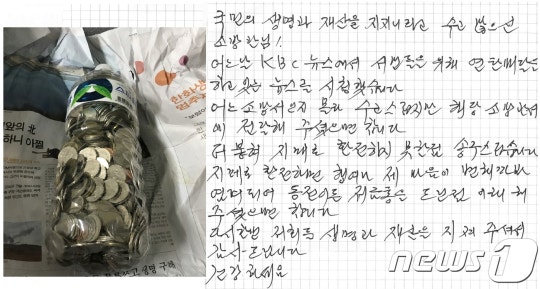 국민의 생명과 재산을 지키시느라고 수고 많으신
소방관님!
어느날 KBC 뉴스에서 서명들을 위해 연탄배달을
하고 있는 뉴스를 시청했습니다
어느 소방서인지 몰라 수고스럽지만 해당 소방관서
에 전달해 주셨으면 합니다
더불어 지폐로 환전하지 못한점 송구스럽습니다
지폐로 환전하면 혹여나 제 마음이 변할까
염려되어 동전이든 저금통을 드린점 이해 해
주셨으면 합니다
다시한번 저희들 생명과 재산을 지켜 주셔서
감사드립니다
건강하세요
news1
뉴스
앞의 北
하니 아찔
한화생